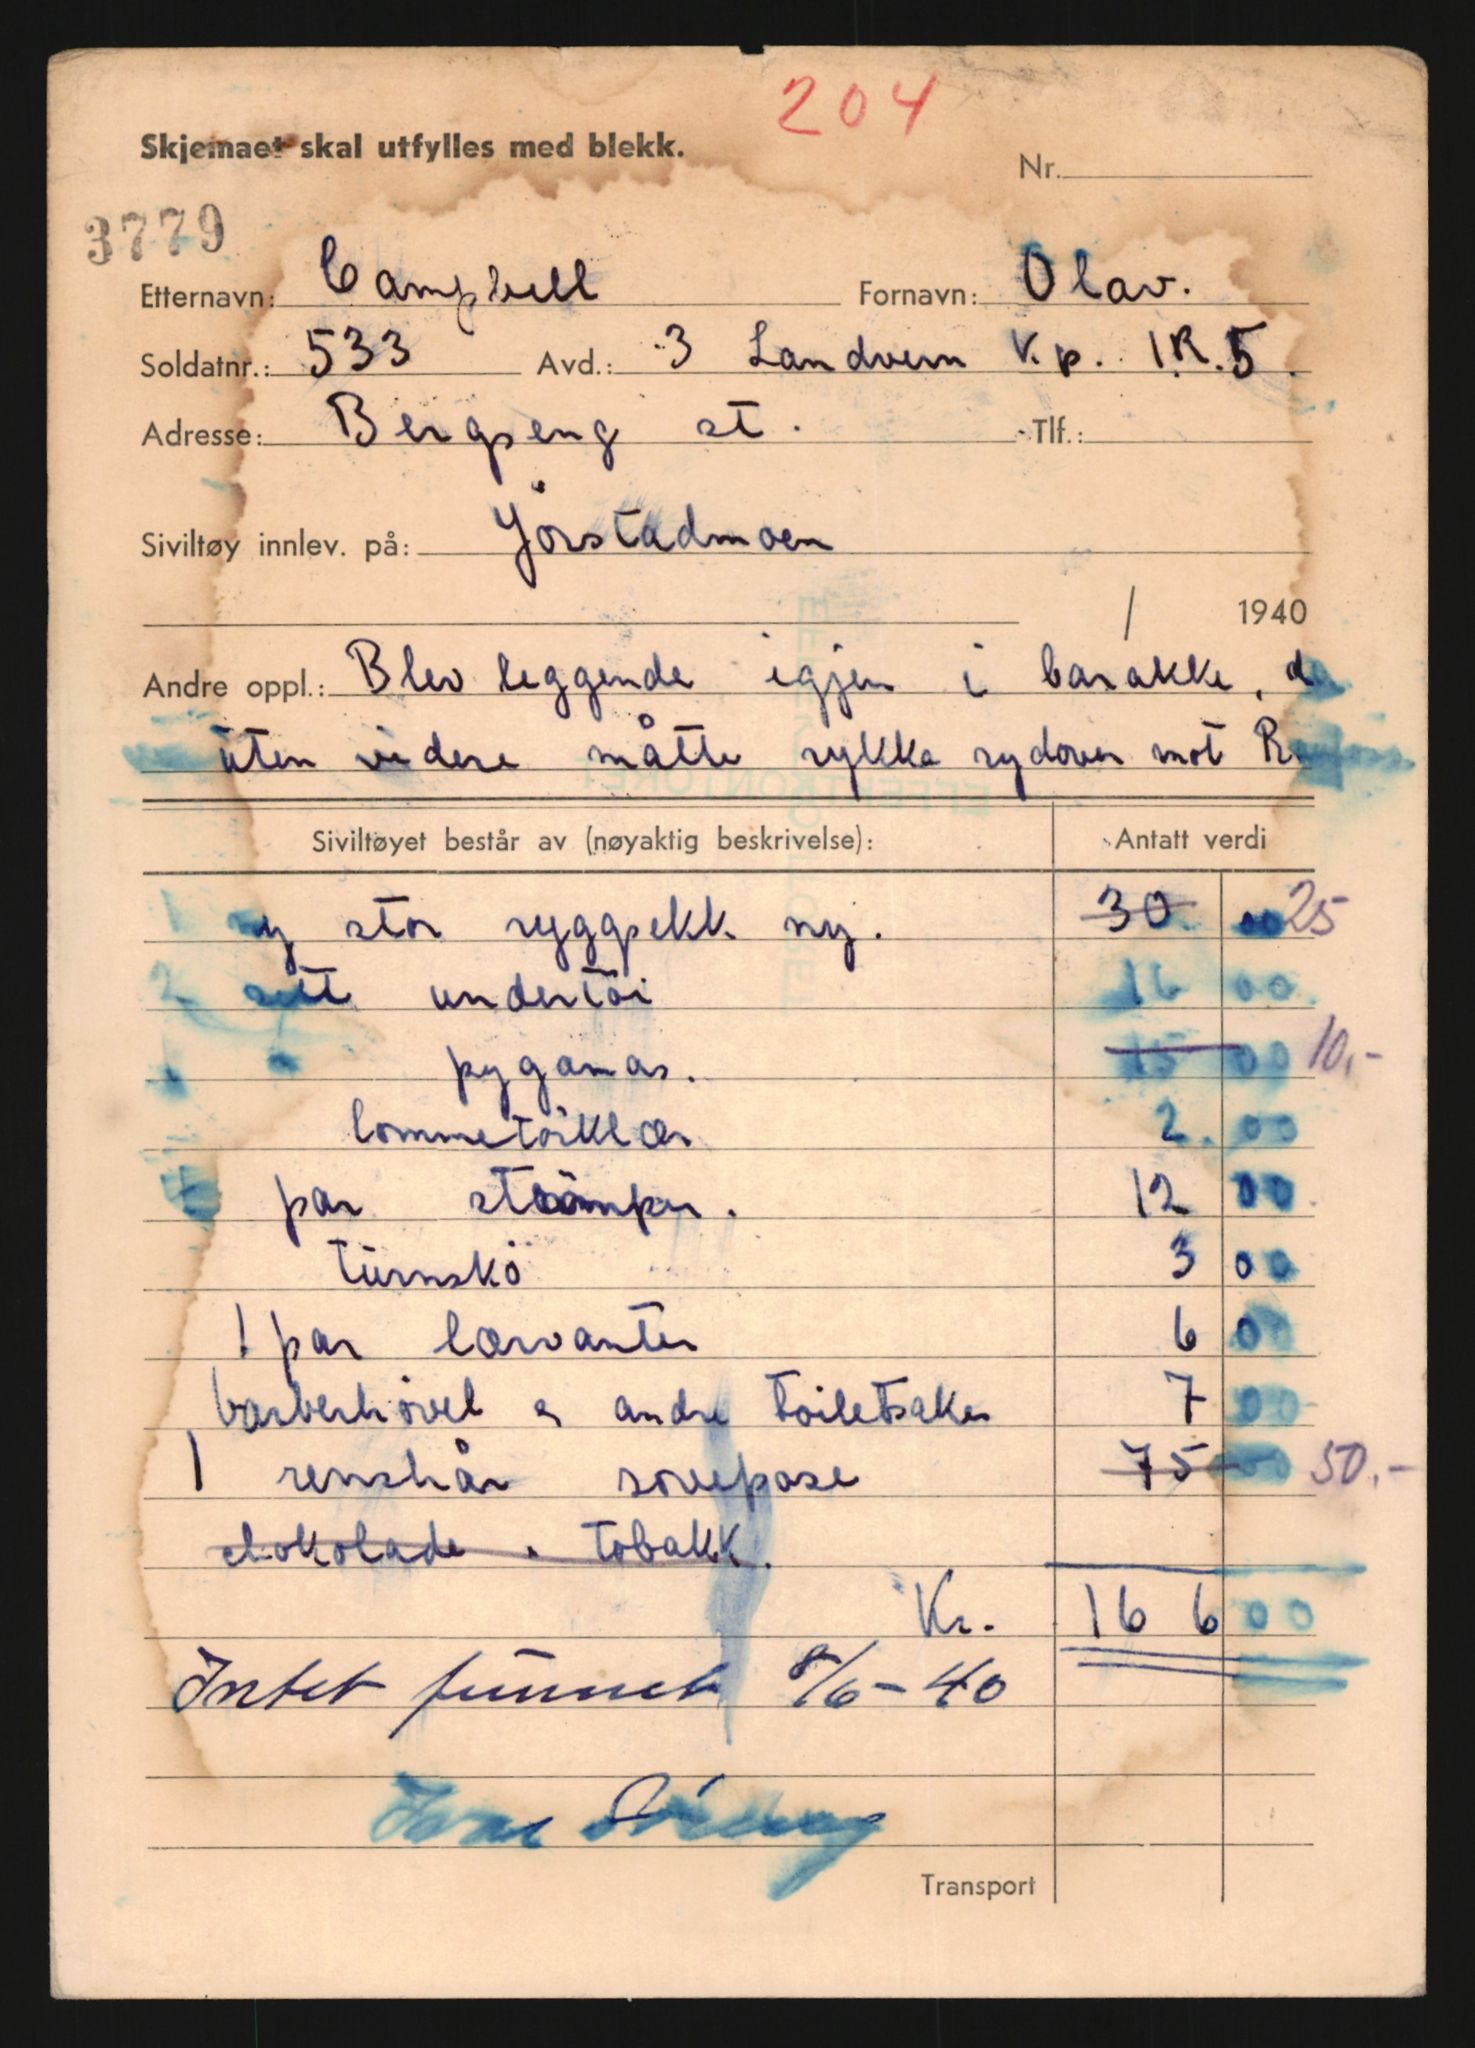 204
Skjemaet skal utfylles med blekk.
Nr.
3779
Etternavn: Campbell Fornavn: Olav.
Soldatnr.: 533 Avd.: 3 Landvern K.p. I.R.5.
Adresse: Bergseng st. Tlf.:
Siviltøy innlev. på: Jörstadmoen
/ 1940
Andre oppl.: Blev leggende igjen i barakke,
uten videre måtte rykke sydover mot
EFFEKTKONTORET
Siviltøyet består av (nøyaktig beskrivelse): Antatt verdi
1 ny stor ryggsekk ny. 30 00 25
2 sett undertöi 16 00
1 pyganas. 15 00 10,-
lommetörklær 2. 00
par strömper. 12 00
turnskö 3 00
1 par lærvanter 6 00
barberhövel & andre toiletsaker 7 00
1 renshår sovepose 75 00 50.-
chokolade . tobakk.
Kr. 166 00
Intet funnet 8/6-40
Transport